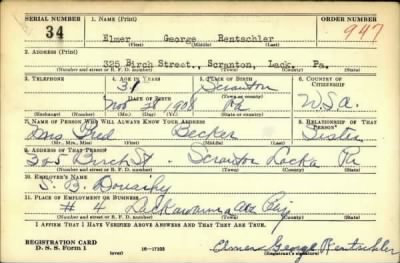 SERIAL NUMBER 1. NAME (Print) ORDER NUMBER
34 Elmer George Rentschler 947
(First) (Middle) (Last)
2. ADDRESS (Print)
325 Birch Street., Scranton, Lack. Pa.
(Number and street or R. F. D. number) (Town) (County) (State)
3. TELEPHONE 4. AGE IN YEARS 5. PLACE OF BIRTH 6. COUNTRY OF CITIZENSHIP
31 Scranton
DATE OF BIRTH (Town or county)
Nov 3 1908 Pa U.S.A.
(Exchange) (Number) (Mo.) (Day) (Yr.) (State or country)
7. NAME OF PERSON WHO WILL ALWAYS KNOW YOUR ADDRESS 8. RELATIONSHIP OF THAT PERSON
Mrs Fred Becker Sister
(Mr., Mrs., Miss) (First) (Middle) (Last)
9. ADDRESS OF THAT PERSON
305 Birch St. Scranton Lacka Pa
(Number and street or R. F. D. number) (Town) (County) (State)
10. EMPLOYER'S NAME
S. B.
11. PLACE OF EMPLOYMENT OR BUSINESS
# 4 Lackawanna Ave
(Number and street or R. F. D. number) (Town) (County) (State)
I AFFIRM THAT I HAVE VERIFIED ABOVE ANSWERS AND THAT THEY ARE TRUE.
REGISTRATION CARD
D. S. S. Form 1 16—17105 Elmer George Rentschler
(Registrant's signature)